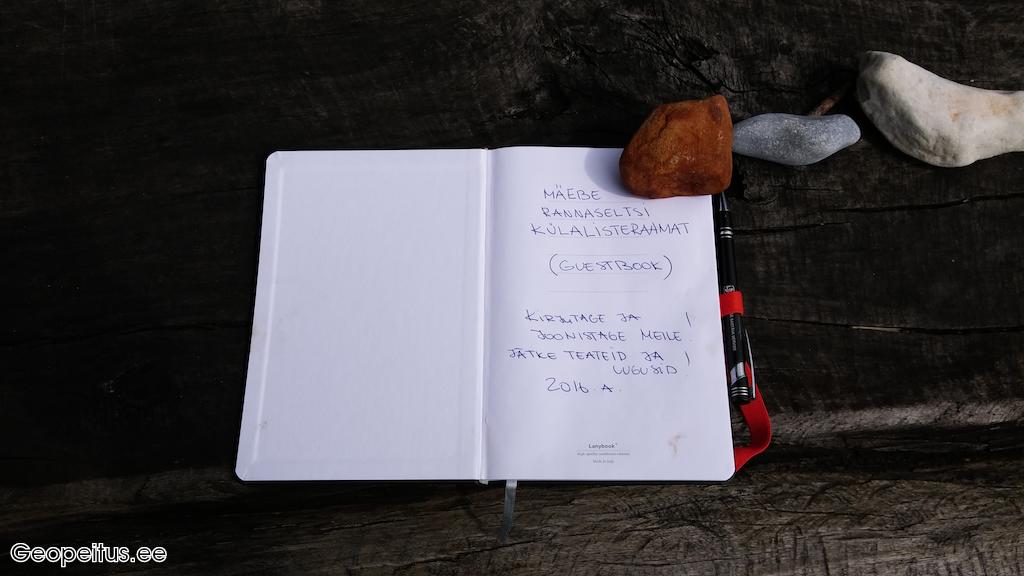 MÄEBE
RANNASELTSI
KÜLALISTERAAMAT
(GUESTBOOK)
KIRJUTAGE JA
JOONISTAGE MEILE!
JÄTKE TEATEID JA
LUGUSID!
2016. A.
Lanybook
Made in Italy
Geopeitus.ee